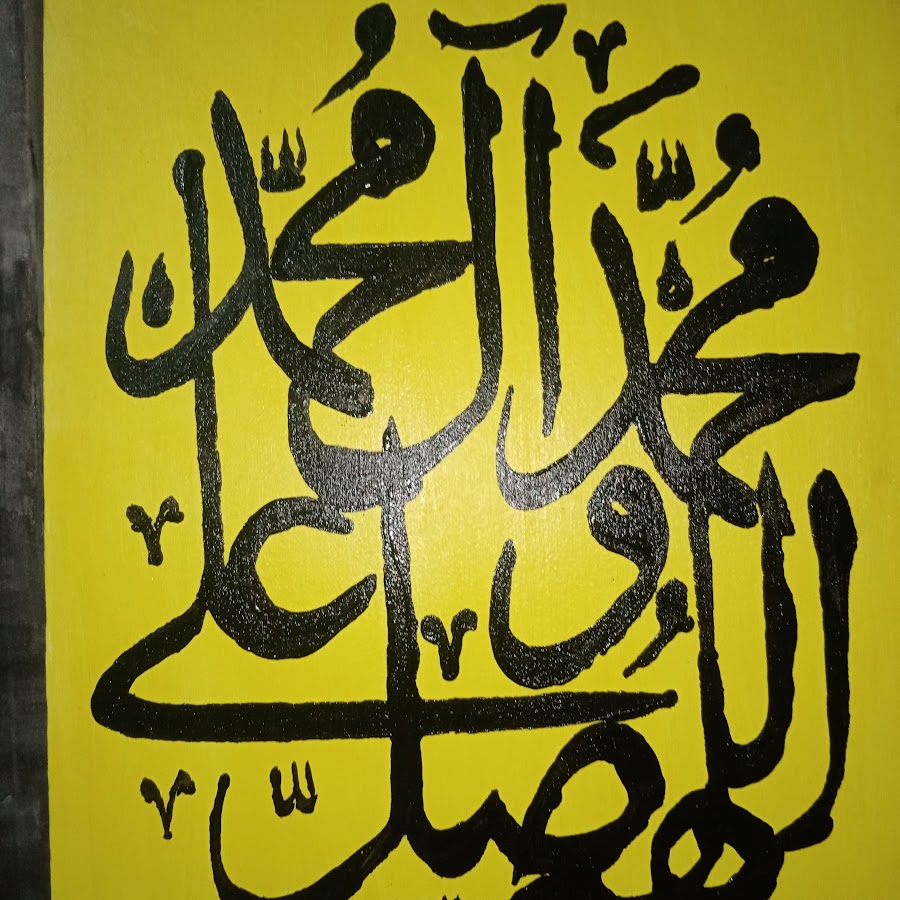 اللهم صلّ على
محمّد و آل محمّد